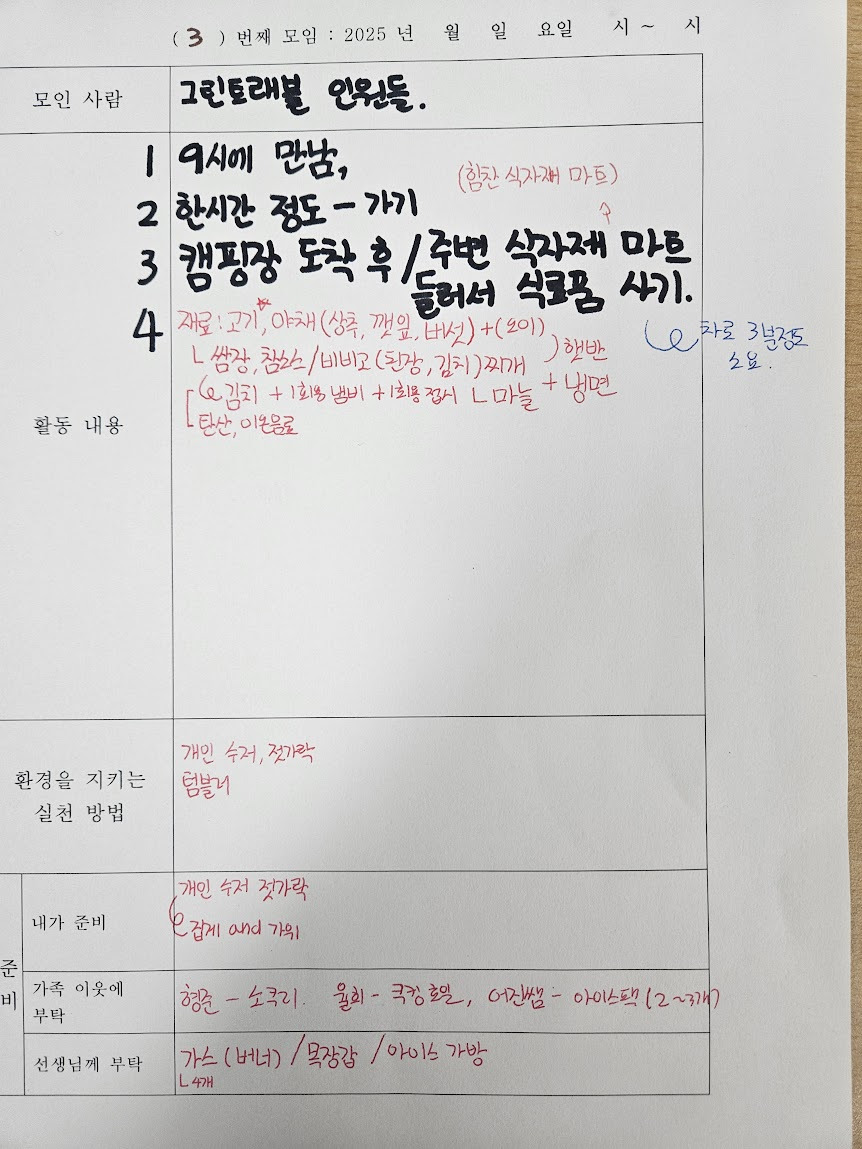 ( 3 ) 번째 모임 : 2025 년 월 일 요일 시 ~ 시
모인 사람
그린트래블 인원들.
1 9시에 만남,
(힘찬 식자재 마트)
2 한시간 정도 - 가기
3 캠핑장 도착 후 / 주변 식자제 마트
들러서 식료품 사기.
차로 3분정도
소요.
활동 내용
4 재료 : 고기, 야채 (상추, 깻잎, 버섯) + (오이)
ㄴ 쌈장, 참소스 / 비비고 (된장, 김치) 찌개 ) 햇반
김치 + 1회용 냄비 + 1회용 접시 ㄴ 마늘 + 냉면
탄산, 이온음료
환경을 지키는
실천 방법
개인 수저, 젓가락
텀블러
준비
내가 준비
개인 수저 젓가락
집게 and 가위
가족 이웃에
부탁
형준 - 소쿠리. 율희 - 쿠킹호일, 어진쌤 - 아이스팩 (2~3개)
선생님께 부탁
가스 (버너) / 목장갑 / 아이스 가방
ㄴ 4개